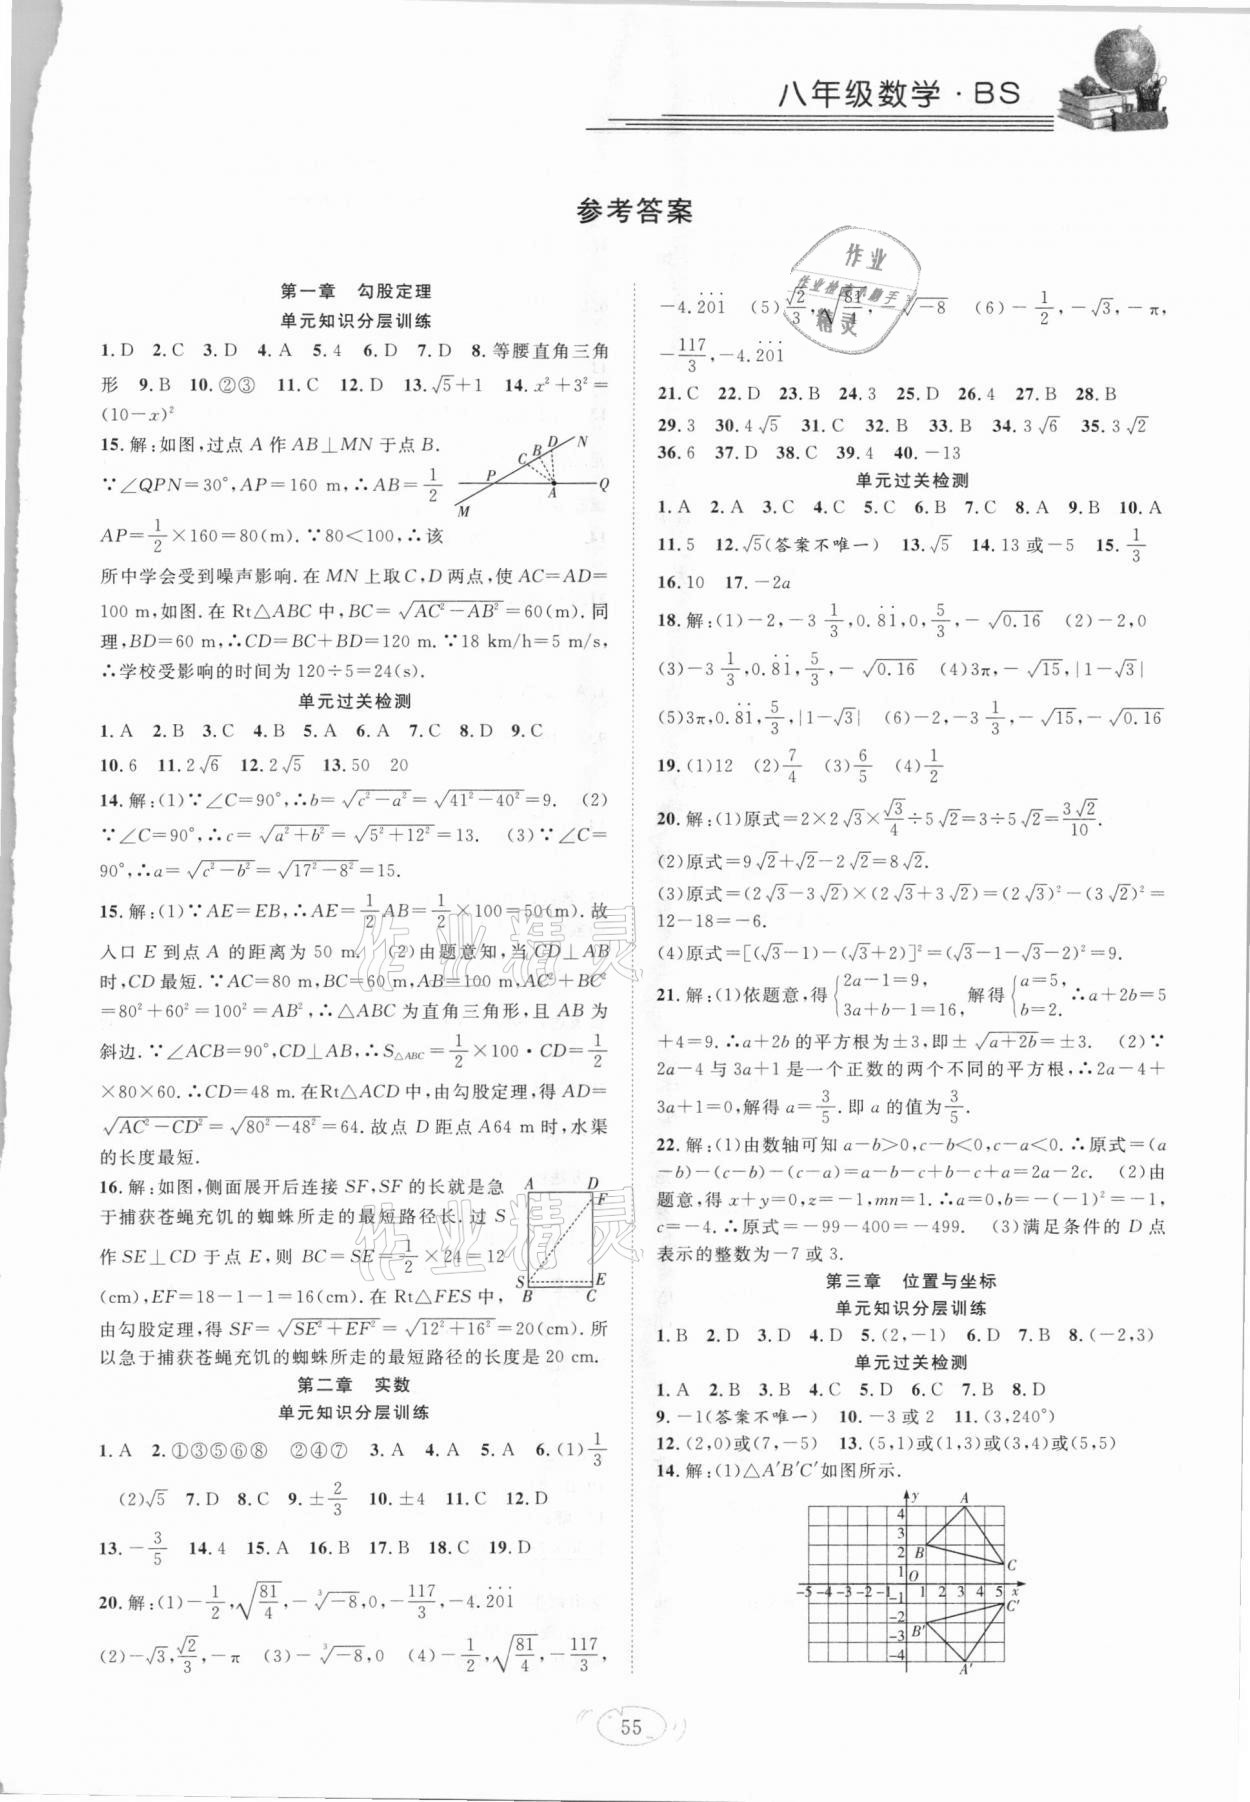 八年级数学·BS
参考答案
第一章 勾股定理
单元知识分层训练
1.D 2.C 3.D 4.A 5.4 6.D 7.D 8.等腰直角三角
形 9.B 10.②③ 11.C 12.D 13.√5+1 14.x²+3²=
(10-x)²
15.解:如图,过点A作AB⊥MN于点B.
∵∠QPN=30°,AP=160 m,∴AB=1/2
AP=1/2×160=80(m).∵80<100,∴该
所中学会受到噪声影响.在MN上取C,D两点,使AC=AD=
100 m,如图.在Rt△ABC中,BC=√(AC²-AB²)=60(m).同
理,BD=60 m,∴CD=BC+BD=120 m.∵18 km/h=5 m/s,
∴学校受影响的时间为120÷5=24(s).
M P C B D N A Q
单元过关检测
1.A 2.B 3.C 4.B 5.A 6.A 7.C 8.D 9.C
10.6 11.2√6 12.2√5 13.50 20
14.解:(1)∵∠C=90°,∴b=√(c²-a²)=√(41²-40²)=9. (2)
∵∠C=90°,∴c=√(a²+b²)=√(5²+12²)=13. (3)∵∠C=
90°,∴a=√(c²-b²)=√(17²-8²)=15.
15.解:(1)∵AE=EB,∴AE=1/2AB=1/2×100=50(m).故
入口E到点A的距离为50 m. (2)由题意知,当CD⊥AB
时,CD最短.∵AC=80 m,BC=60 m,AB=100 m,AC²+BC²
=80²+60²=100²=AB²,∴△ABC为直角三角形,且AB为
斜边.∵∠ACB=90°,CD⊥AB,∴S△ABC=1/2×100·CD=1/2
×80×60.∴CD=48 m.在Rt△ACD中,由勾股定理,得AD=
√(AC²-CD²)=√(80²-48²)=64.故点D距点A64 m时,水渠
的长度最短.
16.解:如图,侧面展开后连接SF,SF的长就是急
于捕获苍蝇充饥的蜘蛛所走的最短路径长.过S
作SE⊥CD于点E,则BC=SE=1/2×24=12
(cm),EF=18-1-1=16(cm).在Rt△FES中,
由勾股定理,得SF=√(SE²+EF²)=√(12²+16²)=20(cm).所
以急于捕获苍蝇充饥的蜘蛛所走的最短路径的长度是20 cm.
A D F S E B C
第二章 实数
单元知识分层训练
1.A 2.①③⑤⑥⑧ ②④⑦ 3.A 4.A 5.A 6.(1)1/3
(2)√5 7.D 8.C 9.±2/3 10.±4 11.C 12.D
13.-3/5 14.4 15.A 16.B 17.B 18.C 19.D
20.解:(1)-1/2,√(81/4),-³√-8,0,-117/3,-4.2̇0̇1̇
(2)-√3,√2/3,-π (3)-³√-8,0 (4)-1/2,√(81/4),-117/3,
-4.2̇0̇1̇ (5)√2/3,√(81/4),-³√-8 (6)-1/2,-√3,-π,
-117/3,-4.2̇0̇1̇
21.C 22.D 23.B 24.3 25.D 26.4 27.B 28.B
29.3 30.4√5 31.C 32.B 33.B 34.3√6 35.3√2
36.6 37.D 38.C 39.4 40.-13
单元过关检测
1.A 2.A 3.C 4.C 5.C 6.B 7.C 8.A 9.B 10.A
11.5 12.√5(答案不唯一) 13.√5 14.13或-5 15.1/3
16.10 17.-2a
18.解:(1)-2,-3 1/3,0.8̇1̇,0,5/3,-√0.16 (2)-2,0
(3)-3 1/3,0.8̇1̇,5/3,-√0.16 (4)3π,-√15,|1-√3|
(5)3π,0.8̇1̇,5/3,|1-√3| (6)-2,-3 1/3,-√15,-√0.16
19.(1)12 (2)7/4 (3)6/5 (4)1/2
20.解:(1)原式=2×2√3×√3/4÷5√2=3÷5√2=3√2/10.
(2)原式=9√2+√2-2√2=8√2.
(3)原式=(2√3-3√2)×(2√3+3√2)=(2√3)²-(3√2)²=
12-18=-6.
(4)原式=[(√3-1)-(√3+2)]²=(√3-1-√3-2)²=9.
21.解:(1)依题意,得{2a-1=9, 3a+b-1=16, 解得{a=5, b=2. ∴a+2b=5
+4=9.∴a+2b的平方根为±3,即±√(a+2b)=±3. (2)∵
2a-4与3a+1是一个正数的两个不同的平方根,∴2a-4+
3a+1=0,解得a=3/5.即a的值为3/5.
22.解:(1)由数轴可知a-b>0,c-b<0,c-a<0.∴原式=(a
-b)-(c-b)-(c-a)=a-b-c+b-c+a=2a-2c. (2)由
题意,得x+y=0,z=-1,mn=1.∴a=0,b=-(-1)²=-1,
c=-4.∴原式=-99-400=-499. (3)满足条件的D点
表示的整数为-7或3.
第三章 位置与坐标
单元知识分层训练
1.B 2.D 3.D 4.D 5.(2,-1) 6.D 7.B 8.(-2,3)
单元过关检测
1.A 2.B 3.B 4.C 5.D 6.C 7.B 8.D
9.-1(答案不唯一) 10.-3或2 11.(3,240°)
12.(2,0)或(7,-5) 13.(5,1)或(1,3)或(3,4)或(5,5)
14.解:(1)△A′B′C′如图所示.
y A 4 3 2 B 1 C O
-5 -4 -3 -2 -1 1 2 3 4 5 x
-1 C′ -2 B′ -3 -4 A′
55
作业
作业检查
精灵
作业精灵
作业精灵